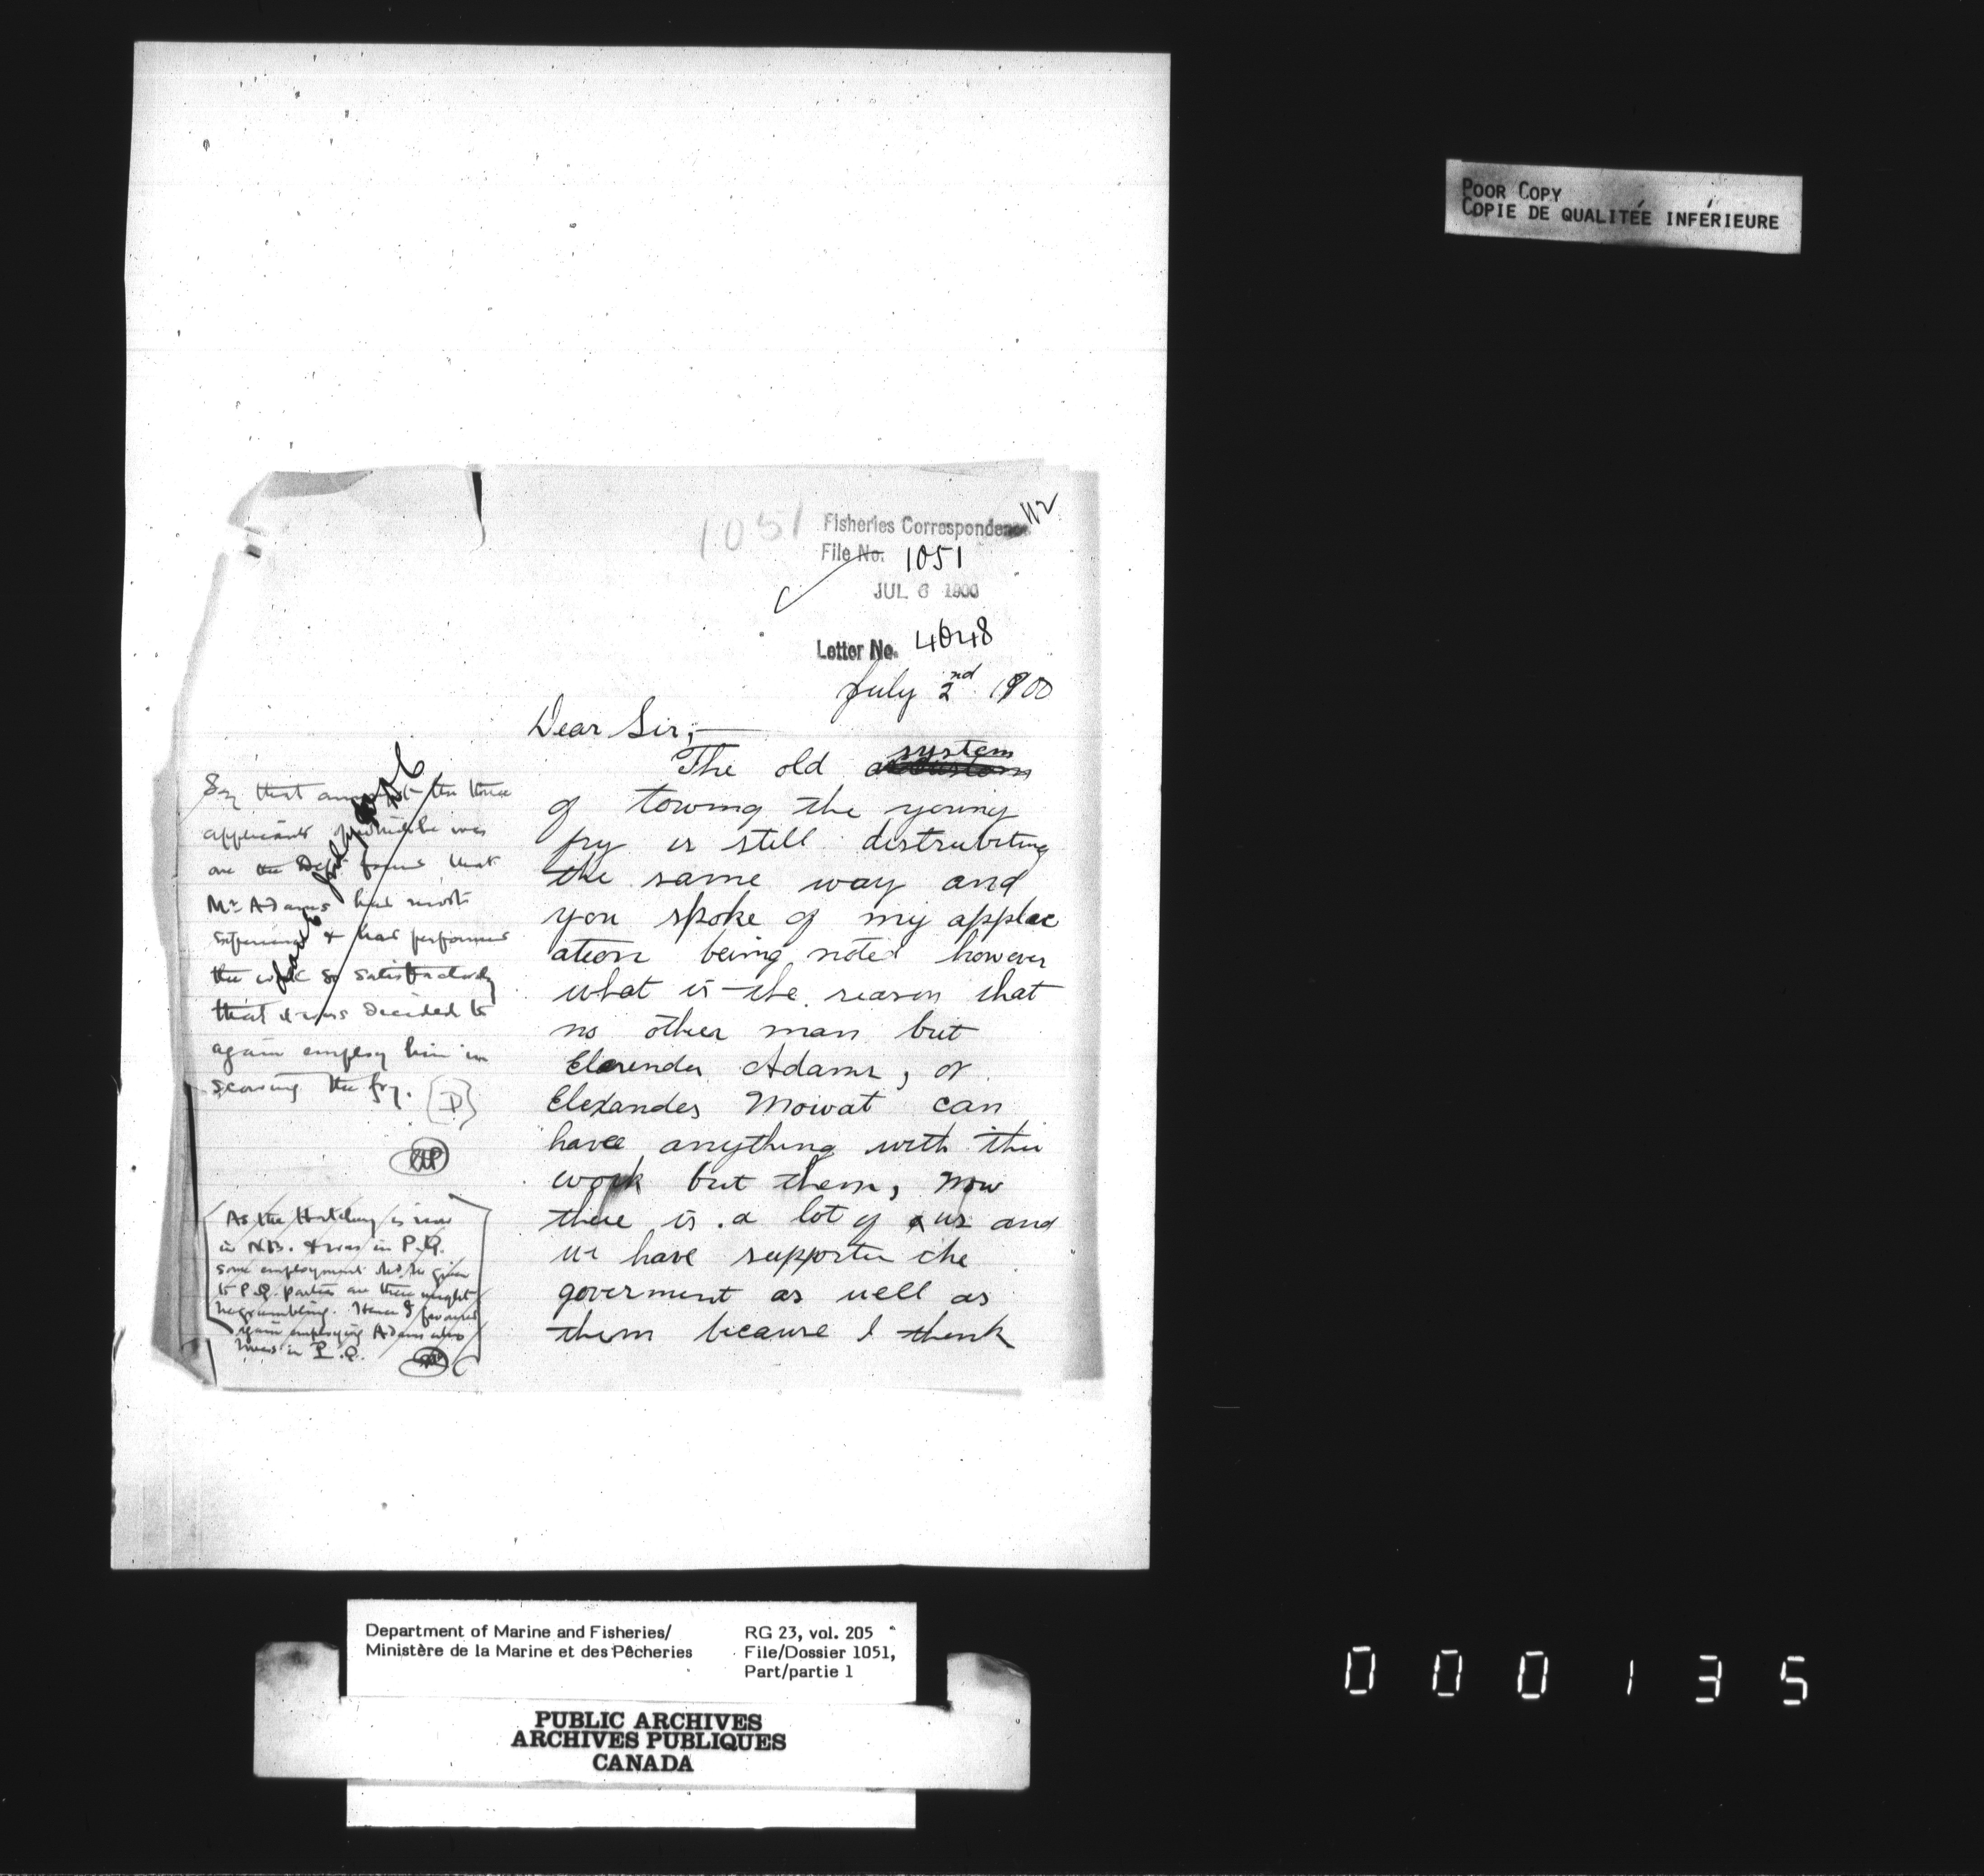 POOR COPY
COPIE DE QUALITÉE INFÉRIEURE
1051
112
Fisheries Correspondence
File No. 1051
JUL 6 1900
Letter No. 4048
July 2nd 1900
Dear Sir;—
The old system
of towing the young
fry is still distrubiting
the same way and
you spoke of my applac
ation being noted however
what is the reason that
no other man but
Elexander Adams, or
Elexander Mowat can
have anything with this
work but them, now
there is a lot of us and
we have supporter the
goverment as well as
them because I think
Say that amongst the three
applicants of which he was
one the Dept. found that
Mr Adams had most
experience & had performed
the work so satisfactorily
that it was decided to
again employ him in
scowing the fry.
As the Hatchery is now
in N.B. & was in P.Q.
some employment shd be given
to P.Q. parties or there might
be grumbling. Hence I favoured
again employing Adams who
lives in P.Q.
Department of Marine and Fisheries/
Ministère de la Marine et des Pêcheries
RG 23, vol. 205
File/Dossier 1051,
Part/partie 1
PUBLIC ARCHIVES
ARCHIVES PUBLIQUES
CANADA
000135